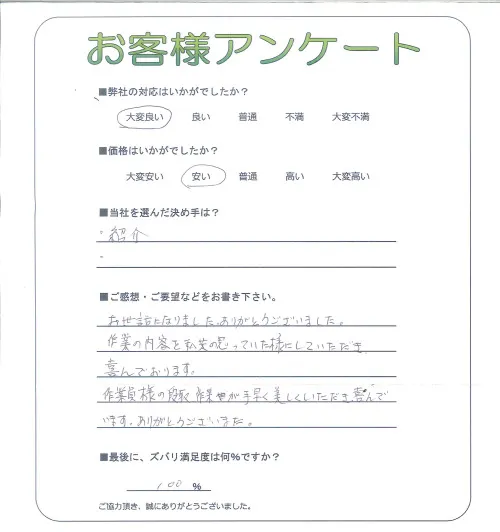 お客様アンケート
■弊社の対応はいかがでしたか？
大変良い 良い 普通 不満 大変不満
■価格はいかがでしたか？
大変安い 安い 普通 高い 大変高い
■当社を選んだ決め手は？
・紹介
・
■ご感想・ご要望などをお書き下さい。
お世話になりました。ありがとうございました。
作業の内容を私共の思っていた様にしていただき
喜んでおります。
作業員様の 作業が手早く美しくいただき喜んで
います。ありがとうございました。
■最後に、ズバリ満足度は何％ですか？
100 ％
ご協力頂き、誠にありがとうございました。